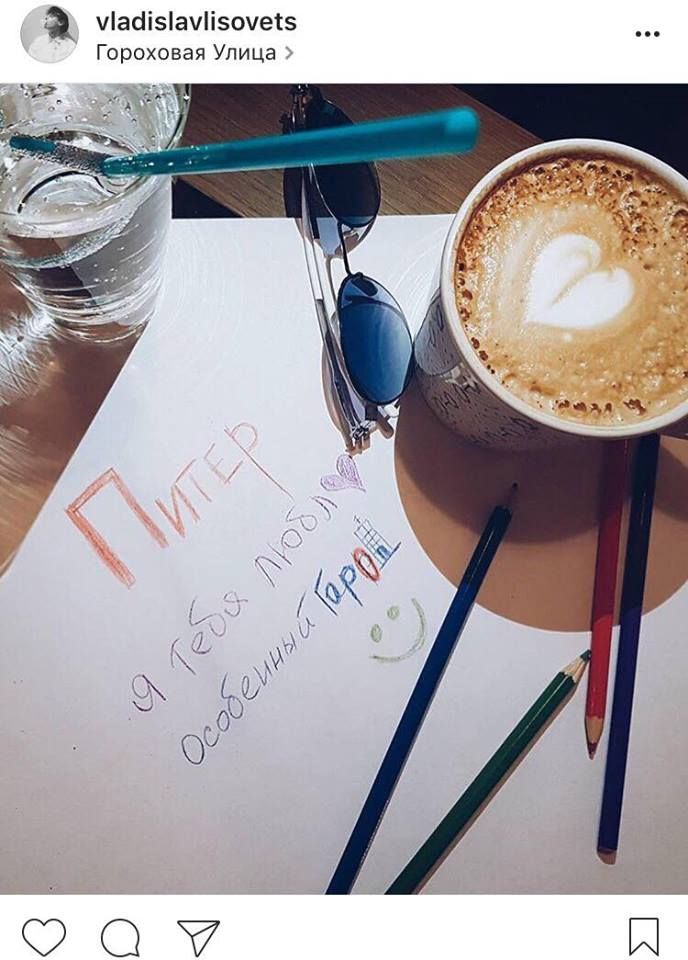 vladislavlisovets
Гороховая Улица
Питер
я тебя любл
особенный Гор